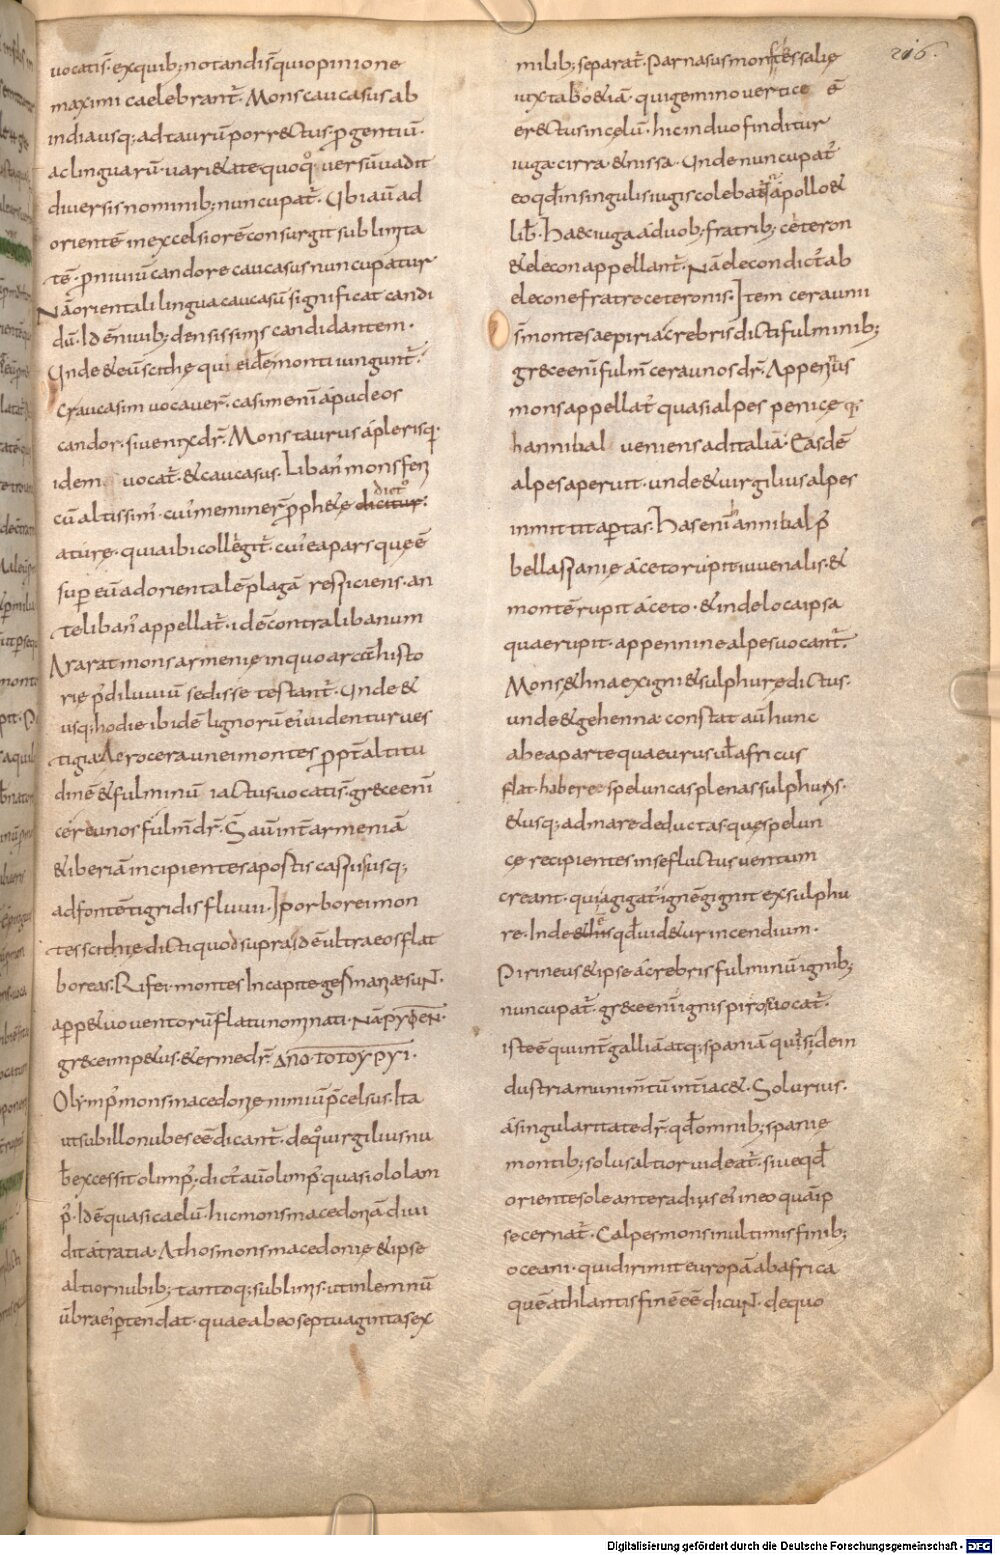 uocatis· ex quib; notandi s̄ qui opinione
maximi caelebrant̄· Mons caucasus ab
india usq; ad taurū porrectus· p̱ gentiū·
ac linguarū· uari&ate quoq° uersū uadit
diuersis nominib; nuncupat̄· Ubi aū ad
orientē in excelsiorē consurgit sublimita
tē· p̱ niuiū candore caucasus nuncupatur
Nā orientali lingua caucasū significat candi
dū· Id ē niuib; densissimis candidantem·
Unde & eū scithę qui eidē monti iungunt̄·
craucasim uocauer̄· casim enī ápud eos
candor· siue nix dr̄· Mons taurus áplerisq·
idem uocat̄ & caucasus· Liban' mons fen
cū altissim'· cui' meminer̄ p̱ph&ę dicitur· dict°
a ture· quia ibi collegit̄· cui' ea pars quę ē
sup̱ eū ad orientalē plagā respiciens· an
teliban' appellat̄· id ē contra libanum
Ararat mons armenię in quo arcā histo
rię p' diluuiū sedisse testant̄· Unde &
usq; hodie ibidē lignorū ei' uidentur ues
tigia Aeroceraunei montes p̱pt̄ altitu
dinē & fulminū iactus uocati s̄· grece enī
cereunos fulm̄ dr̄· S̄ aū int̄ armeniā
& iberiā incipientes a portis caspiis usq;
ad fontē tigridis fluuii· Iporborei mon
tes scithię dicti quod supra· id ē ultra eos flat
boreas· Rifei montes In capite germaniae sunt·
a p̱p&uo uentorū flatu nominati· NĀ ΡΥΦΕΝ·
grece imp&us· & erme dr̄· ΑΠΟ ΤΟΤΟΥ ΡΥΙ·
Olymp' mons macedonię nimiū p̄celsus· Ita
ut sub illo nubes eē dicant̄· de q° uirgilius nu
b̄ excessit olimp'· dict' aū olimp' quasi ololam
p'· Id ē quasi caelū· hic mons macedoniā diui
dit á tratia· Athos mons macedonię & ipse
altior nubib; tantoq; sublimis· ut in lemnū
ūbra ei' p̱tendat· quae abeo septuaginta sex
216·
milib; separat̄· Parnasus mons tessalię
iuxta bo&iā· qui gemino uertice ē
erectus in celū· hic in duo finditur
iuga· cirra· & nissa· Unde nuncupat̄
eo qd̄ in singulis iugis colebat̄ ápollo &
lib̄· Haec iuga á duob; fratrib; ceteron
& elecon appellant̄· Nā elecon dict̄ ab
elecone fratre ceteronis· Item ceraunii
s̄ montes aepiri á crebris dicti fulminib;
grece enī fulm̄ ceraunos dr̄· Appeninus
mons appellat̄ quasi alpes penicę q·
hannibal ueniens ad italiā· Easdē
alpes aperuit· unde & uirgilius alpes
inmittit ap̱tas· Has enī annibal p'
bella spanię áceto rupit iuuenalis· &
montē rupit áceto· & inde loca ipsa
quae rupit· appennine alpes uocant̄·
Mons &hna ex igni & sulphure dictus·
unde & gehenna· constat aū hunc
ab ea parte qua eurus ul' africus
flat· habere speluncas plenas sulphuris·
& usq; ad mare deductas· quę spelun
cę recipientes in se fluctus uentum
creant· qui agigat' ignē gignit ex sulphu
re· Inde est qd̄ uid&ur incendium·
Pirineus & ipse ácrebris fulminū ignib;
nuncupat̄· grece enī ignis piros uocat̄·
iste ē qui int̄ galliā atq; spaniā quasi de in
dustria munim̄tū int̄iac&· Solurius·
á singularitate dr̄· qd̄ omnib; spanię
montib; solus altior uideat̄· siue qd̄
oriente sole ante radius ei' in eo quā ip
se cernat̄· Calpes mons in ultimis finib;
oceani· qui dirimit europā ab africa
quē athlantis finē eē dicunt· de quo
Digitalisierung gefördert durch die Deutsche Forschungsgemeinschaft - DFG